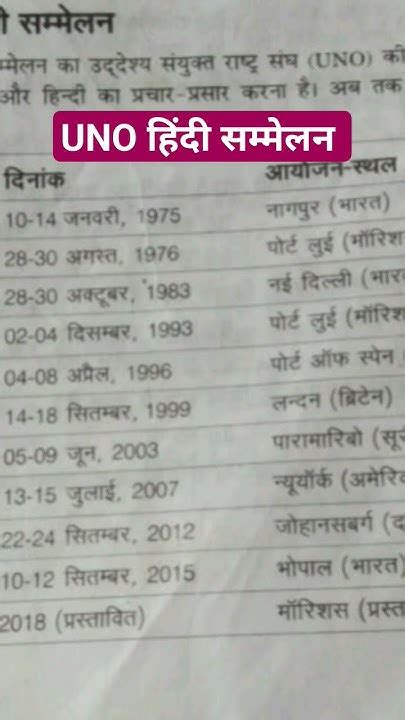 ी सम्मेलन
म्मेलन का उद्देश्य संयुक्त राष्ट्र संघ (UNO) की
और हिन्दी का प्रचार-प्रसार करना है। अब तक
UNO हिंदी सम्मेलन
दिनांक आयोजन-स्थल
10-14 जनवरी, 1975 नागपुर (भारत)
28-30 अगस्त, 1976 पोर्ट लुई (मॉरिश
28-30 अक्टूबर, 1983 नई दिल्ली (भार
02-04 दिसम्बर, 1993 पोर्ट लुई (मॉरिश
04-08 अप्रैल, 1996 पोर्ट ऑफ स्पेन
14-18 सितम्बर, 1999 लन्दन (ब्रिटेन)
05-09 जून, 2003 पारामारिबो (सूर
13-15 जुलाई, 2007 न्यूयॉर्क (अमेरि
22-24 सितम्बर, 2012 जोहान्सबर्ग (द
10-12 सितम्बर, 2015 भोपाल (भारत)
2018 (प्रस्तावित) मॉरिशस (प्रस्त